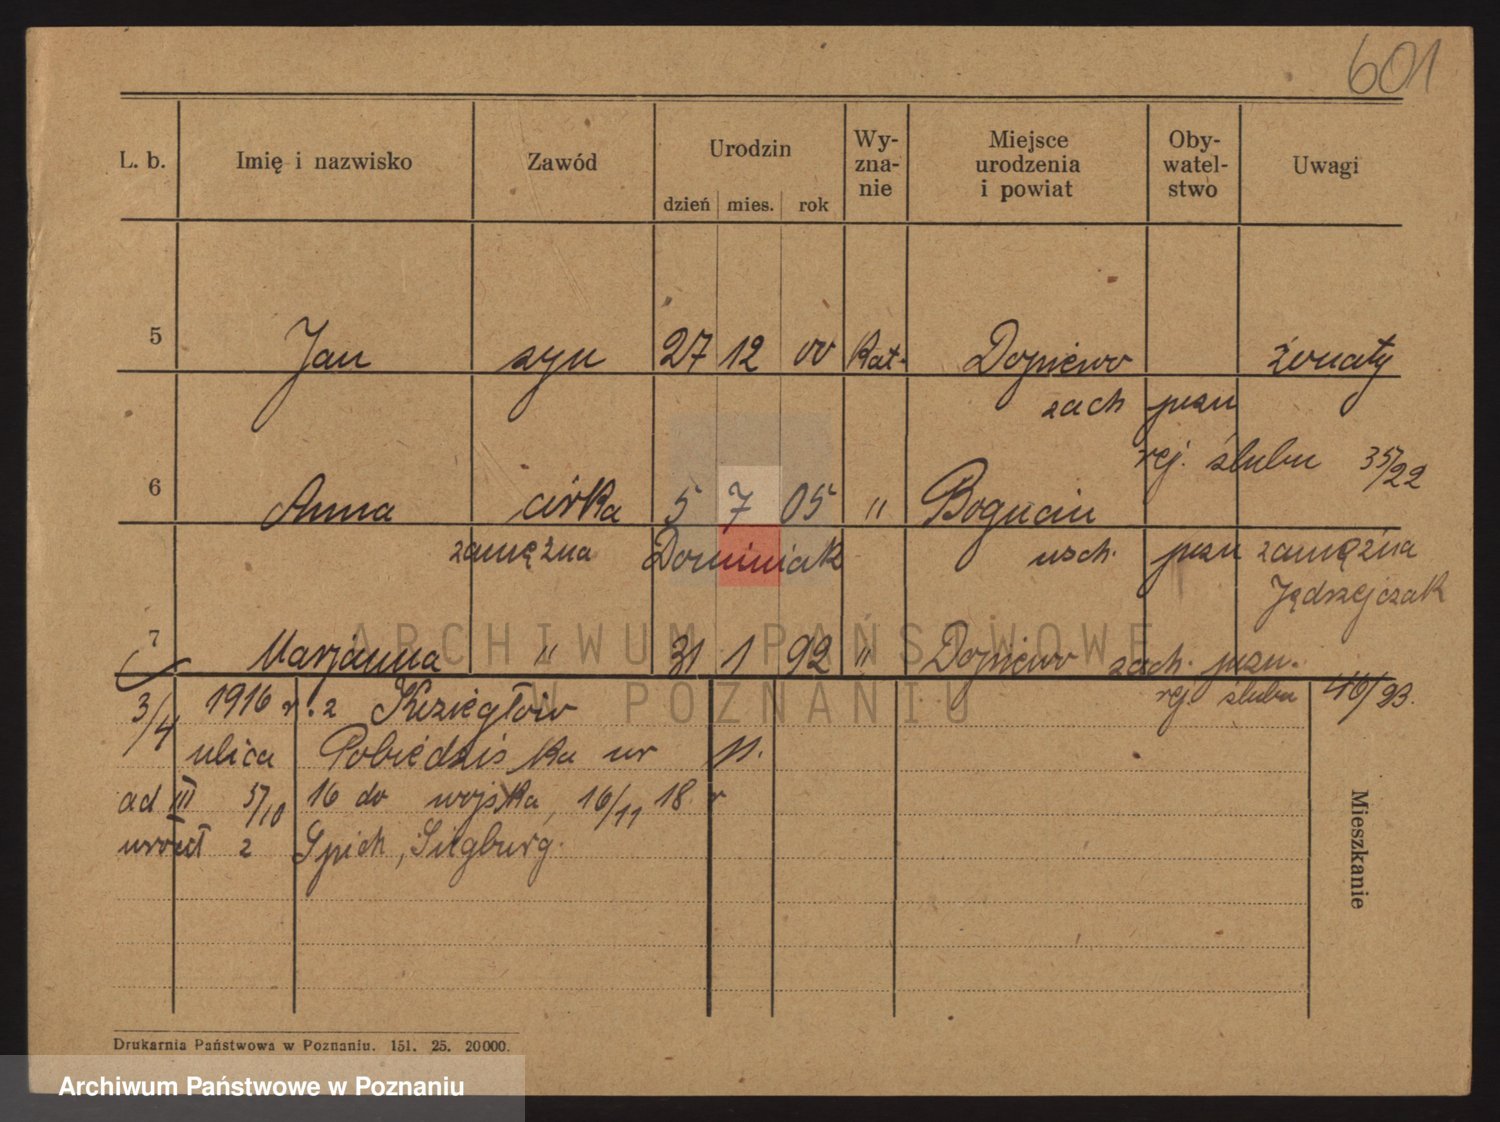 601
L. b. Imię i nazwisko Zawód Urodzin Wy-zna-nie Miejsce urodzenia i powiat Oby-watel-stwo Uwagi
dzień mies. rok
5 Jan syn 27 12 00 kat. Dopiewo żonaty
zach pozn
rej. ślubu 35/22
6 Anna córka 5 7 05 " Bogucin
zamężna Dominiak wsch. pozn zamężna
Jędrzejczak
7 Marjanna " 31 1 92 " Dopiewo zach. pozn.
rej ślubu 46/23.
3/4 1916 r. z Koziegłów
ulica Pobiedziska nr 11.
ad III 5/10 16 do wojska, 16/11 18 r
wrócił z Spich, Siegburg.
Mieszkanie
Drukarnia Państwowa w Poznaniu. 151. 25. 20000.
ARCHIWUM PAŃSTWOWE
W POZNANIU
Archiwum Państwowe w Poznaniu